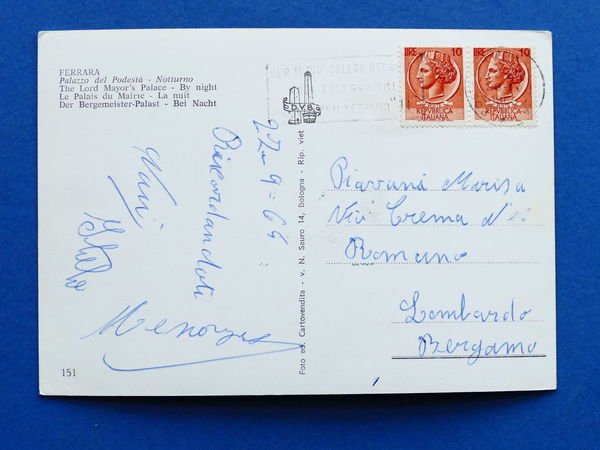 FERRARA
Palazzo del Podestà - Notturno
The Lord Mayor's Palace - By night
Le Palais du Mairie - La nuit
Der Bergemeister-Palast - Bei Nacht
LIRE 10
LIRE 10
POSTE
REPUBBLICA
ITALIANA
REPUBBLICA
ITALIANA
TELEGRAMMI
D.V.B.
22-9-64
Ricordandoti
Foto ed. Cartovendita - v. N. Sauro 14, Bologna - Rip. viet
Marisa
Via Crema
Romano
Lombardo
Bergamo
151